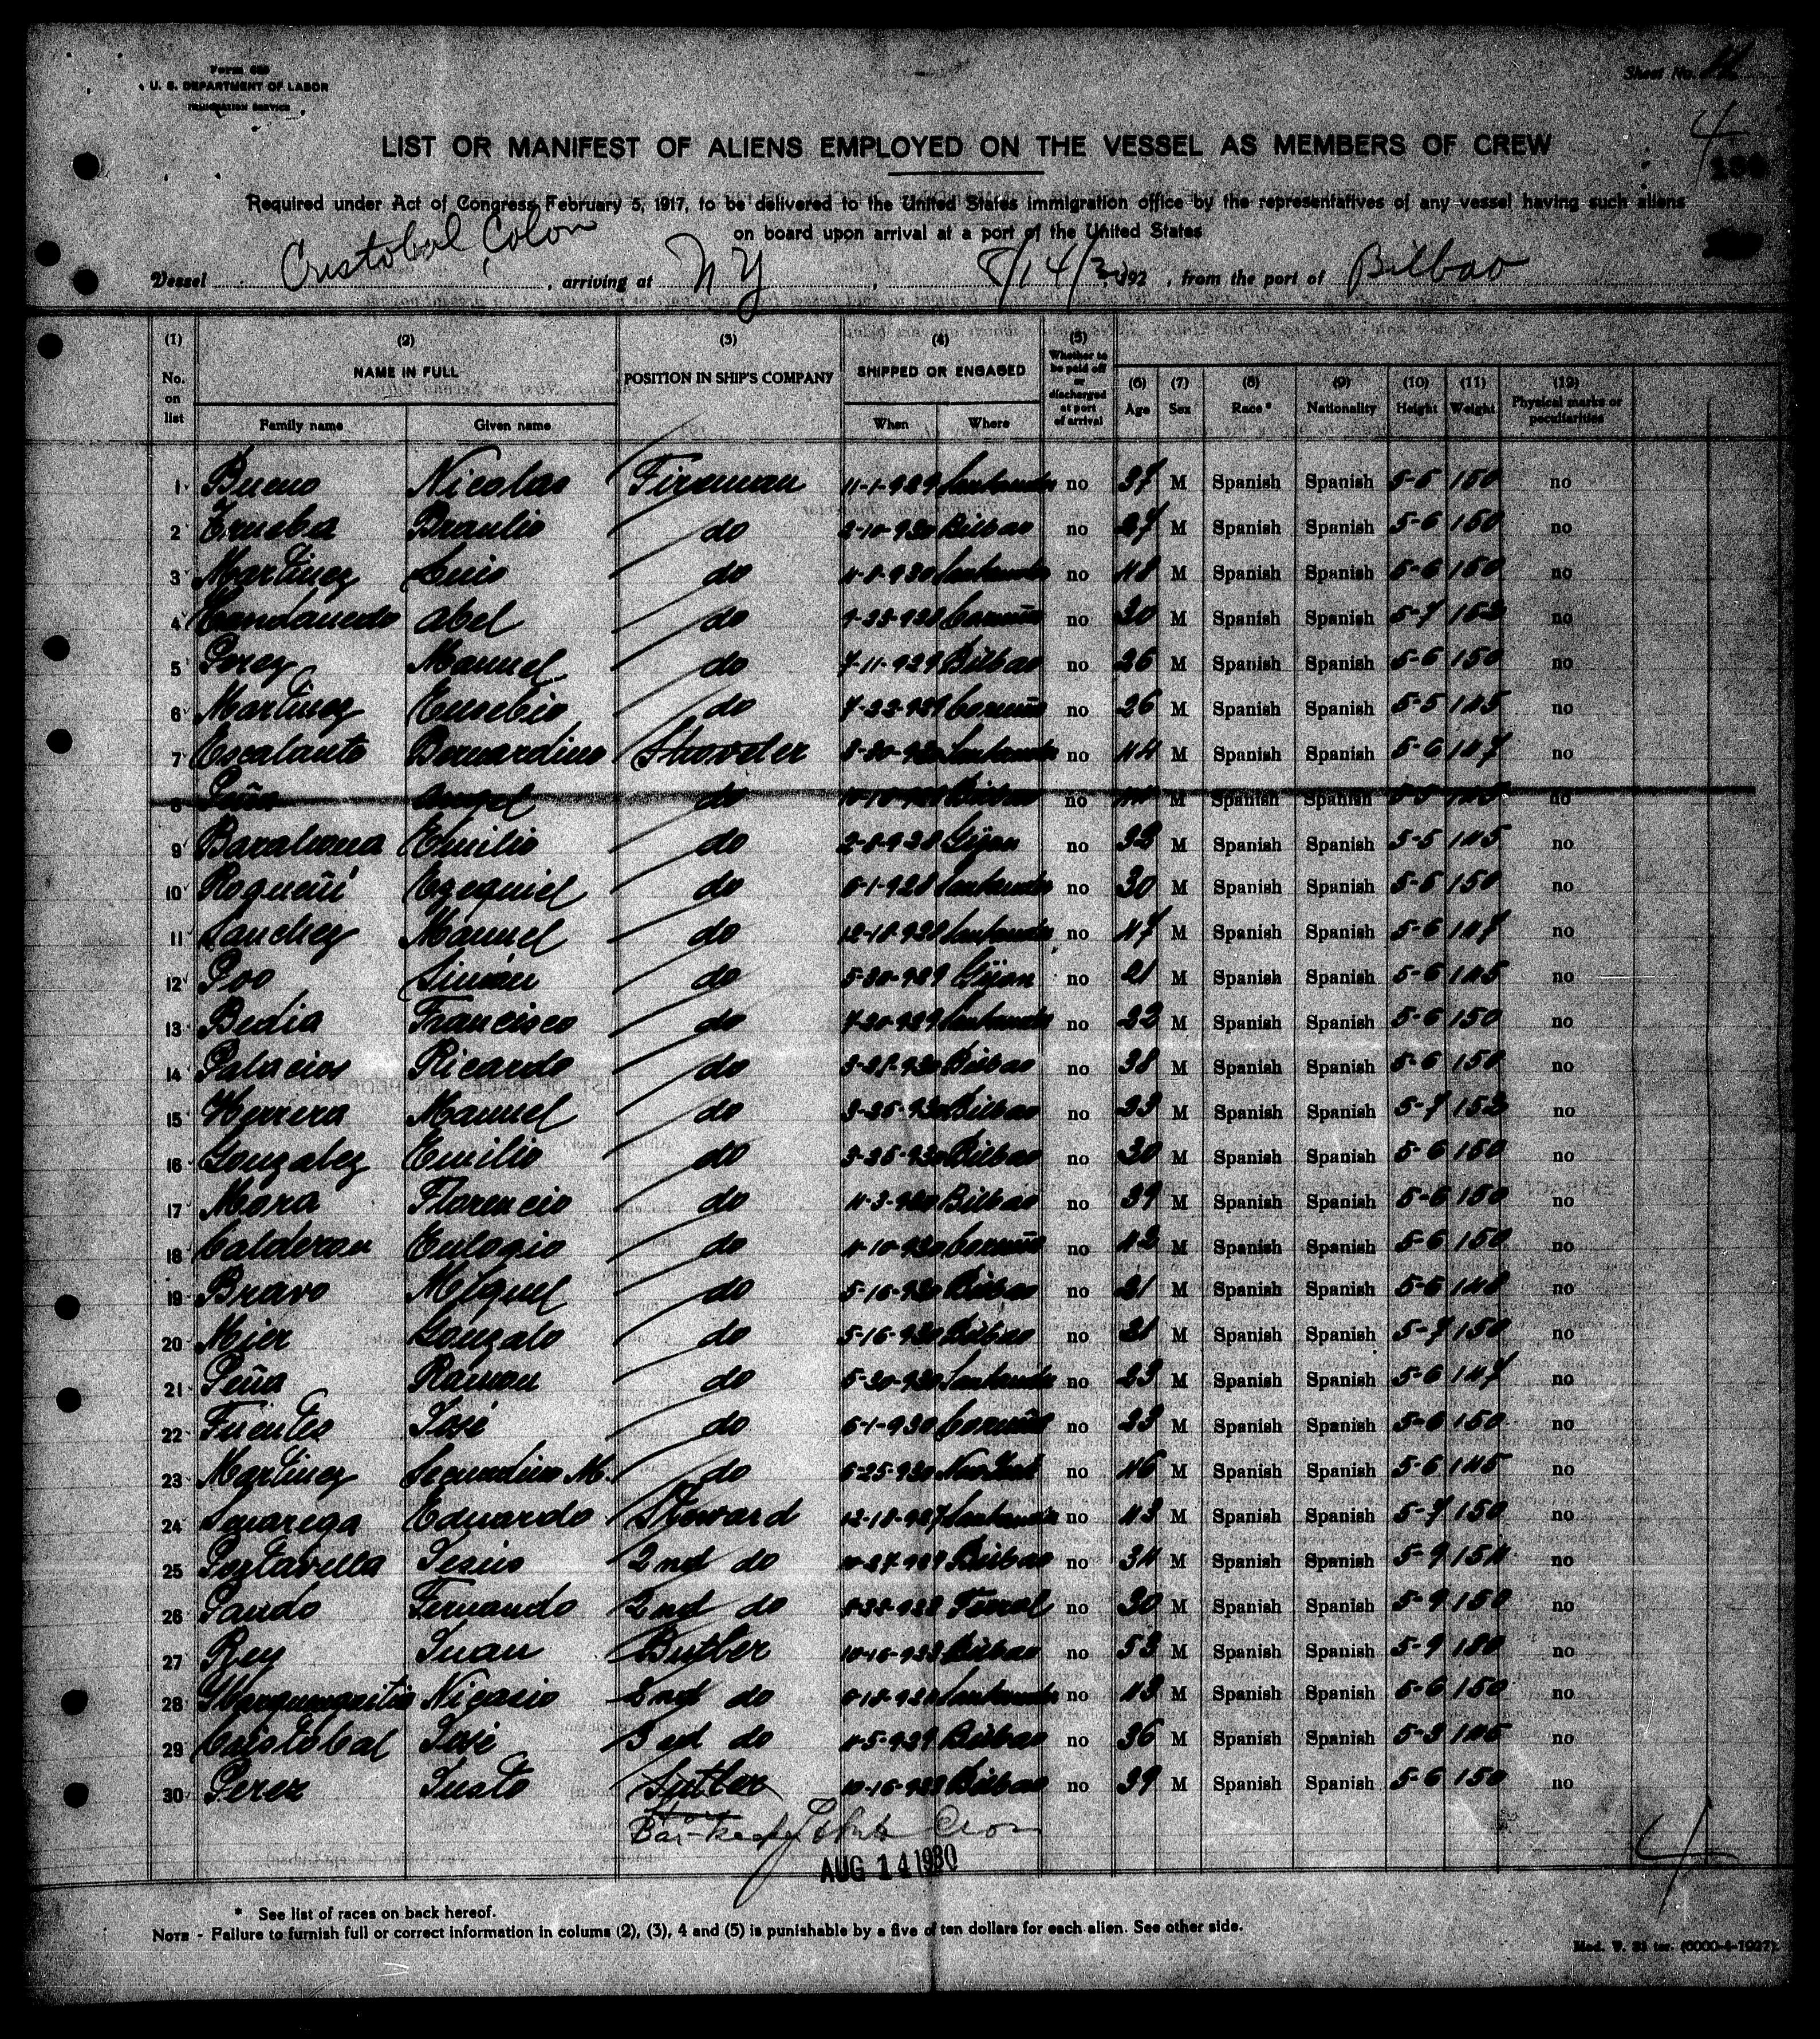 Form 689
U. S. DEPARTMENT OF LABOR
IMMIGRATION SERVICE
Sheet No.
4
LIST OR MANIFEST OF ALIENS EMPLOYED ON THE VESSEL AS MEMBERS OF CREW
Required under Act of Congress February 5, 1917, to be delivered to the United States immigration office by the representatives of any vessel having such aliens
on board upon arrival at a port of the United States
Vessel Cristobal Colon, arriving at NY, 8/14/30, 192 , from the port of Bilbao
(1) No. on list (2) NAME IN FULL Family name Given name (3) POSITION IN SHIP'S COMPANY (4) SHIPPED OR ENGAGED When Where (5) Whether to be paid off or discharged at port of arrival (6) Age (7) Sex (8) Race* (9) Nationality (10) Height (11) Weight (12) Physical marks or peculiarities
1 Bueno Nicolas Fireman 11-1-929 Santander no 37 M Spanish Spanish 5-5 150 no
2 Trueba Braulio do 2-10-930 Bilbao no 27 M Spanish Spanish 5-6 150 no
3 Martinez Luis do Santander no 48 M Spanish Spanish 5-6 150 no
4 Abel do Coruña no 30 M Spanish Spanish 5-7 152 no
5 Perez Manuel do 7-11-929 Bilbao no 26 M Spanish Spanish 5-6 150 no
6 Martinez Eusebio do 7-22-929 Coruña no 26 M Spanish Spanish 5-5 145 no
7 Escalante Bernardino Stoveler Santander no 44 M Spanish Spanish 5-6 147 no
8 Peña Angel do Bilbao no M Spanish Spanish no
9 Barahona Emilio do Gijon no 32 M Spanish Spanish 5-5 145 no
10 Ezequiel do Santander no 30 M Spanish Spanish 5-5 150 no
11 Sanchez Manuel do 12-18-928 Santander no 47 M Spanish Spanish 5-6 147 no
12 Poo Simón do 5-30-929 Gijon no 21 M Spanish Spanish 5-6 145 no
13 Bedia Francisco do 7-20-929 Santander no 22 M Spanish Spanish 5-6 150 no
14 Palacios Ricardo do Bilbao no 38 M Spanish Spanish 5-6 150 no
15 Herrera Manuel do 3-25-930 Bilbao no 33 M Spanish Spanish 5-7 152 no
16 Gonzalez Emilio do 3-25-930 Bilbao no 30 M Spanish Spanish 5-6 150 no
17 Mora Florencio do 4-3-930 Bilbao no 39 M Spanish Spanish 5-6 150 no
18 Calderon Eulogio do 4-10-930 Coruña no 42 M Spanish Spanish 5-6 150 no
19 Bravo Miguel do 5-16-930 Bilbao no 21 M Spanish Spanish 5-6 148 no
20 Mier Gonzalo do 5-16-930 Bilbao no 21 M Spanish Spanish 5-7 150 no
21 Peña Ramon do 5-30-930 Santander no 23 M Spanish Spanish 5-6 147 no
22 Fuentes José do 6-1-930 Coruña no 23 M Spanish Spanish 5-6 150 no
23 Martinez Secundino M. do 6-25-930 New York no 46 M Spanish Spanish 5-6 145 no
24 Eduardo Steward 12-18-927 Santander no 43 M Spanish Spanish 5-7 150 no
25 Jesús 2nd do Bilbao no 34 M Spanish Spanish 5-9 154 no
26 Pando Fernando 2nd do Ferrol no 30 M Spanish Spanish 5-9 150 no
27 Rey Juan Butler Bilbao no 53 M Spanish Spanish 5-9 180 no
28 Nicasio 2nd do Santander no 43 M Spanish Spanish 5-6 150 no
29 Cristobal José 3rd do Bilbao no 36 M Spanish Spanish 5-3 145 no
30 Perez Justo Sutler Bilbao no 39 M Spanish Spanish 5-6 150 no
Bar-keeper
AUG 14 1930
4
* See list of races on back hereof.
NOTE - Failure to furnish full or correct information in colums (2), (3), 4 and (5) is punishable by a five of ten dollars for each alien. See other side.
Mod. V. 21 ter. (6000-4-1927).